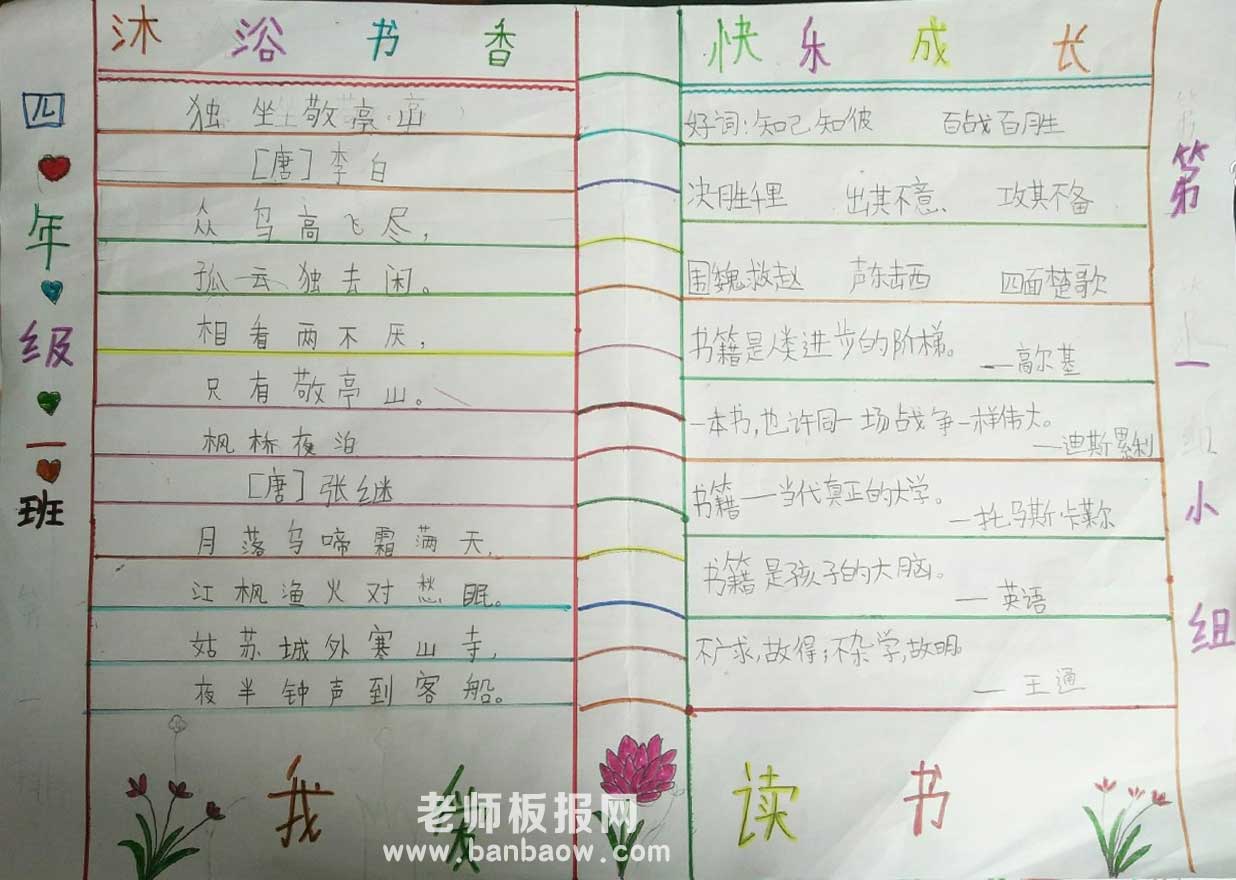 沐浴书香
快乐成长
四年级一班
独坐敬亭山
[唐]李白
众鸟高飞尽,
孤云独去闲。
相看两不厌,
只有敬亭山。
枫桥夜泊
[唐]张继
月落乌啼霜满天,
江枫渔火对愁眠。
姑苏城外寒山寺,
夜半钟声到客船。
好词:知己知彼 百战百胜
决胜千里 出其不意 攻其不备
围魏救赵 声东击西 四面楚歌
书籍是人类进步的阶梯。
—高尔基
一本书,也许同一场战争一样伟大。
—迪斯累利
书籍——当代真正的大学。
—托马斯·卡莱尔
书籍是孩子的大脑。
— 英语
不广求,故得;不杂学,故明。
— 王通
第一小组
我爱读书
老师板报网
www.banbaow.com